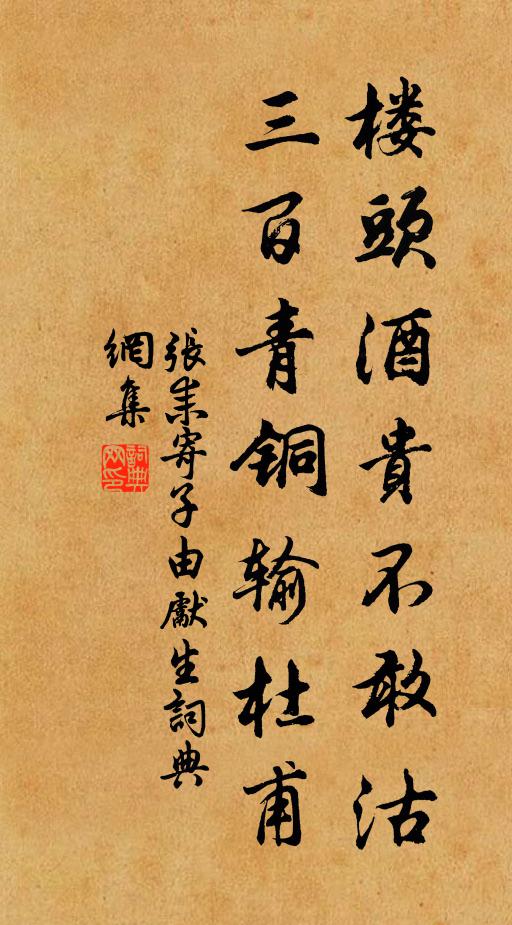 楼頭酒貴不敢沽
三百青铜输杜甫
張耒寄子由獻生詞典
網集
詞典
网印